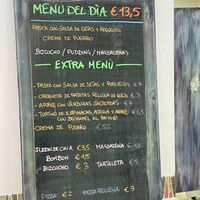 MENU DEL DÍA €13,5
PASTA CON SALSA DE SETAS Y ROQUEFORT
CREMA DE PUERRO
BIZCOCHO / PUDDING / MAGDALENAS
EXTRA MENU
- PASTA CON SALSA DE SETAS Y ROQUEFORT €7
- CROQUETA DE PATATAS RELLENA DE QUESO €3
- ARROZ CON VERDURAS SALTEADAS €7
- DE ESPINACAS, ACELGA Y ARROZ
CON BECHAMEL AL €7
CREMA DE PUERRO €5,5
€3,5
MAGDALENA €1,5
BOMBON €1,5
BIZCOCHO €3
TARTALETA €5
PIZZA €2
PIZZA RELLENA €3